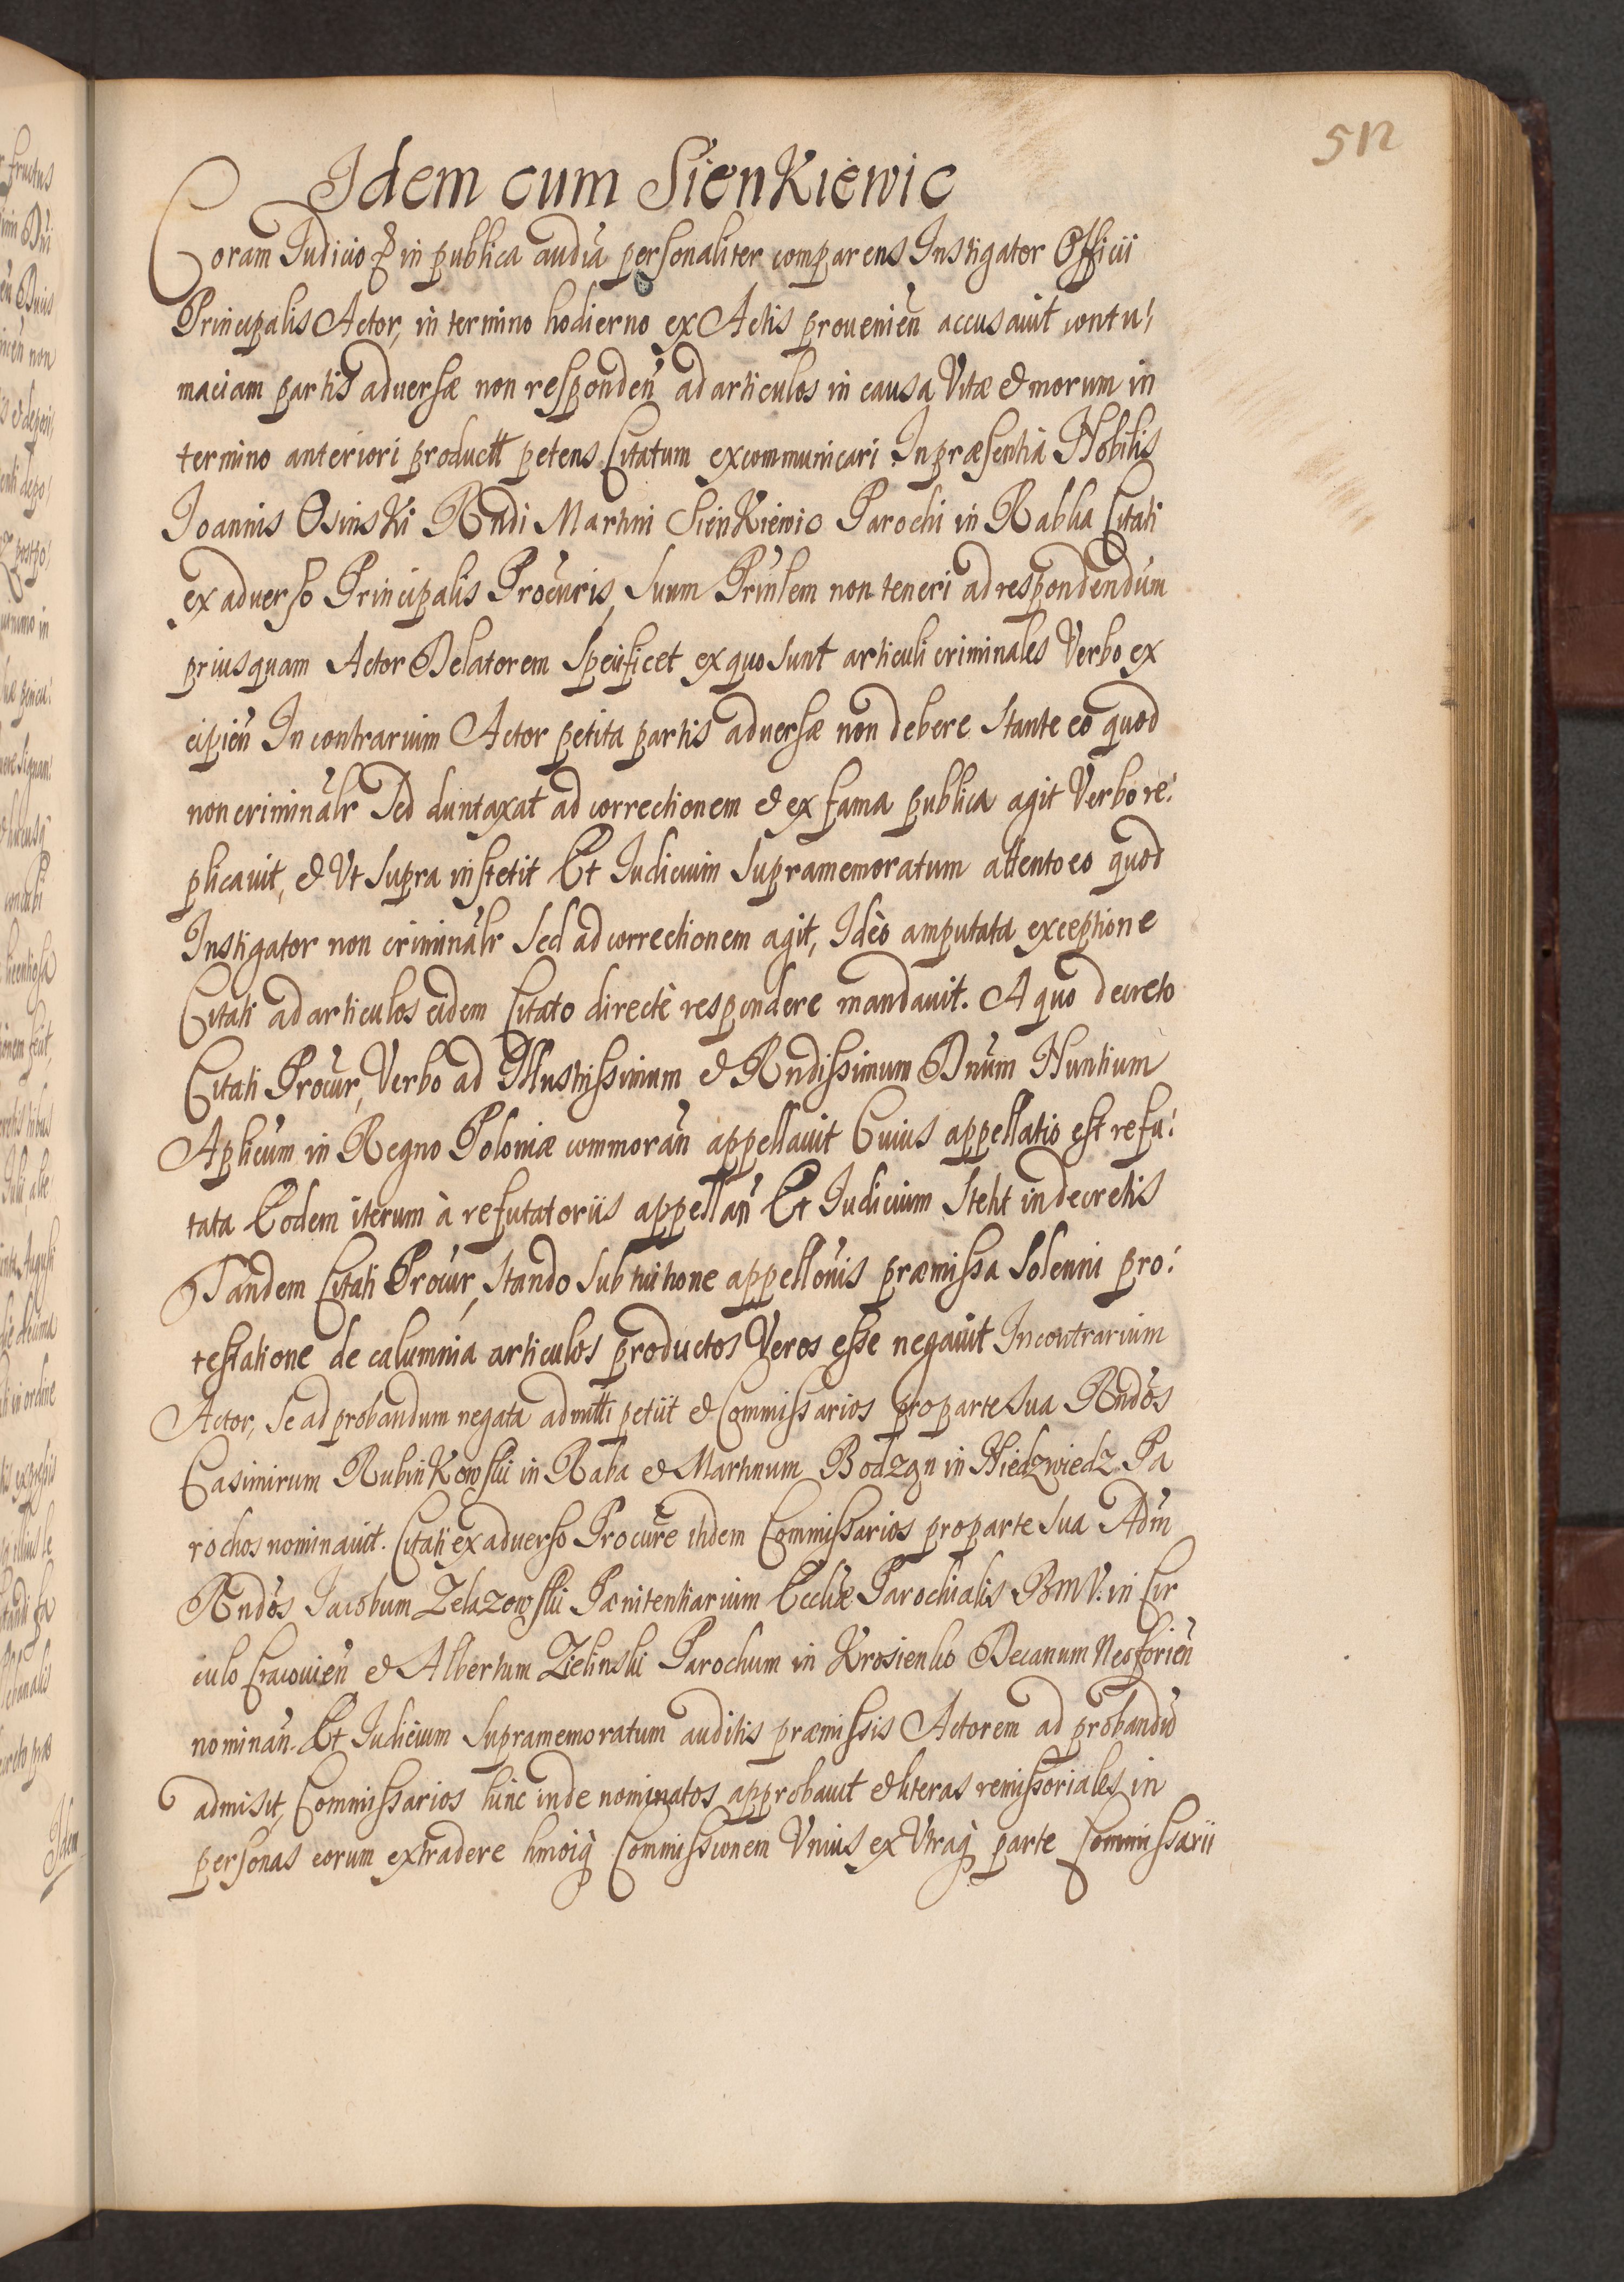 512
Idem cum SienKiewic
Coram Iudicio & in publica audia personaliter comparens Instigator Officii
Principalis Actor, in termino hodierno ex Actis prouenien accusauit contu:
maciam partis aduersæ non responden ad articulos in causa Vitæ & morum in
termino anteriori productt petens Citatum excommunicari In præsentia Nobilis
Ioannis OsinsKi Rndi Martini SienKiewic Parochi in Rabka Citati
ex aduerso Principalis Procuris, Suum Prinlem non teneri ad respondendum
priusquam Actor Delatorem Specificet ex quo Sunt articuli criminales Verbo ex
cipien In contrarium Actor petita partis aduersæ non debere Stante eo quod
non criminalr Sed duntaxat ad correctionem & ex fama publica agit Verbo re:
plicauit, & Vt Supra institit Et Iudicium Supramemoratum attento eo quod
Instigator non criminalr Sed ad correctionem agit, Ideò amputata exceptione
Citati ad articulos eidem Citato directè respondere mandauit. A quo decreto
Citati Procur, Verbo ad Illustrissimum & Rndissimum Dnum Nuntium
Aplicum in Regno Poloniæ commoran appellauit Cuius appellatio est refu:
tata Eodem iterum à refutatoriis appellan Et Iudicium Stetit in decretis
Tandem Citati Procur, Stando Sub tuitione appellonis præmissa Solenni pro:
testatione de calumnia articulos productos Veros esse negauit In contrarium
Actor, Se ad probandum negata admitti petiit & Commissarios pro parte Sua Rndos
Casimirum RubinKowski in Raba & Martinum Bodzon in Niedzwiedz Pa
rochos nominauit. Citati ex aduerso Procure itidem Commissarios pro parte Sua Adm
Rndos Iacobum Zelazowski Pænitentiarium Eccliæ Parochialis BMV. in Cir
culo Cracouien & Albertum Zielinski Parochum in Krosienko Decanum Neoforien
nominan. Et Iudicium Supramemoratum auditis præmissis Actorem ad probandu
admisit, Commissarios hinc inde nominatos approbauit & literas remissoriales in
personas eorum extradere hmoiq Commissionem Vnius ex Vtraq parte Commissarii